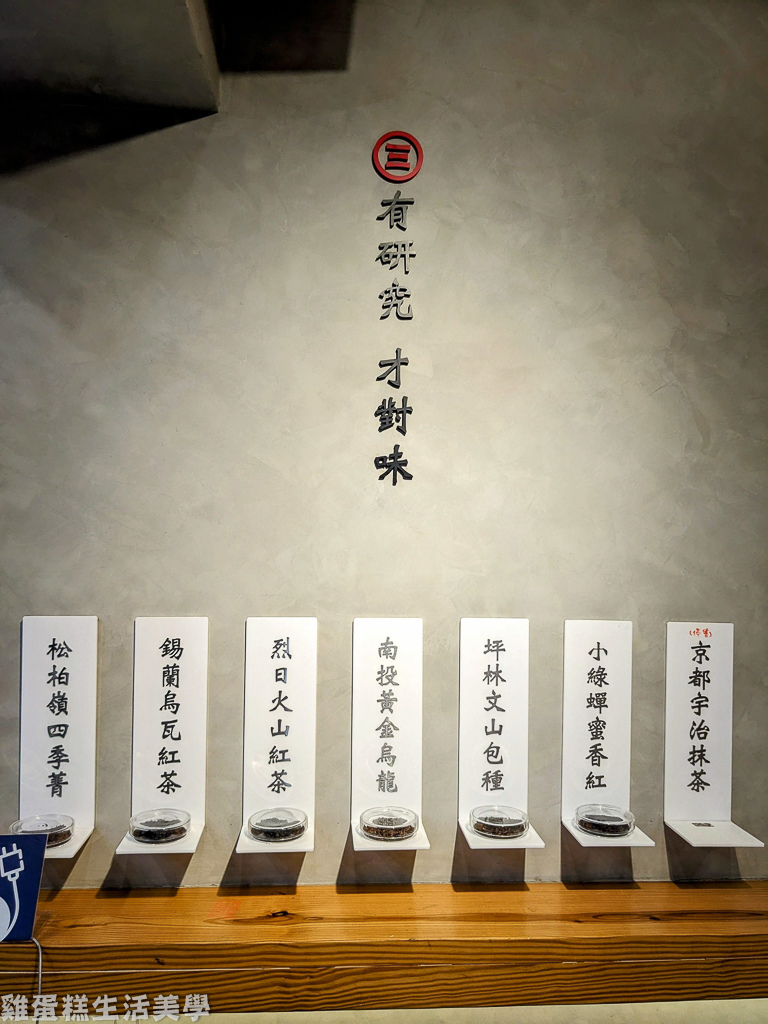 三
有研究 才對味
松柏嶺四季菁
錫蘭烏瓦紅茶
烈日火山紅茶
南投黃金烏龍
坪林文山包種
小綠蟬蜜香紅
京都宇治抹茶
雞蛋糕生活美學